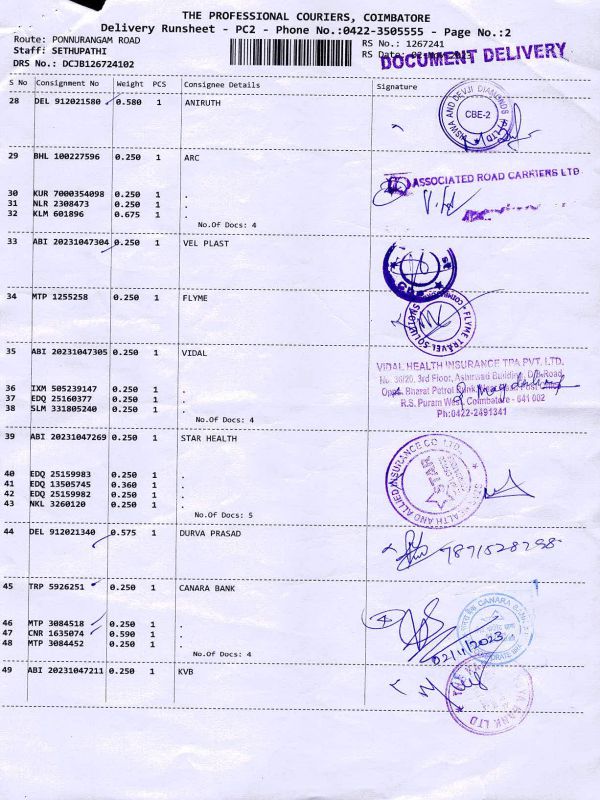 THE PROFESSIONAL COURIERS, COIMBATORE
Delivery Runsheet - PC2 - Phone No.:0422-3505555 - Page No.:2
Route: PONNURANGAM ROAD
RS No.: 1267241
Staff: SETHUPATHI
RS Date:
DOCUMENT DELIVERY
DRS No.: DCJB126724102
S No Consignment No Weight PCS Consignee Details Signature
28 DEL 912021580 0.580 1 ANIRUTH
VISWA AND DEVJI DIAMONDS (P) LTD
CBE-2
29 BHL 100227596 0.250 1 ARC
ASSOCIATED ROAD CARRIERS LTD
30 KUR 7000354098 0.250 1 .
31 NLR 2308473 0.250 1 .
32 KLM 601896 0.675 1 .
No.Of Docs: 4
33 ABI 20231047304 0.250 1 VEL PLAST
34 MTP 1255258 0.250 1 FLYME
FLYME TRAVEL SOLUTIONS
35 ABI 20231047305 0.250 1 VIDAL
VIDAL HEALTH INSURANCE TPA PVT. LTD.
No. 30/20, 3rd Floor, Ashirwad Building, D.B.Road,
Opp. Bharat Petrol Bunk,
R.S. Puram West, Coimbatore - 641 002
Ph:0422-2491341
36 IXM 505239147 0.250 1 .
37 EDQ 25160377 0.250 1 .
38 SLM 331805240 0.250 1 .
No.Of Docs: 4
39 ABI 20231047269 0.250 1 STAR HEALTH
STAR HEALTH AND ALLIED INSURANCE CO. LTD.
40 EDQ 25159983 0.250 1 .
41 EDQ 13505745 0.360 1 .
42 EDQ 25159982 0.250 1 .
43 NKL 3260120 0.250 1 .
No.Of Docs: 5
44 DEL 912021340 0.575 1 DURVA PRASAD
9871528298
45 TRP 5926251 0.250 1 CANARA BANK
CANARA BANK
46 MTP 3084518 0.250 1 .
47 CNR 1635074 0.590 1 .
48 MTP 3084452 0.250 1 .
No.Of Docs: 4
02/11/2023
49 ABI 20231047211 0.250 1 KVB
BANK LTD